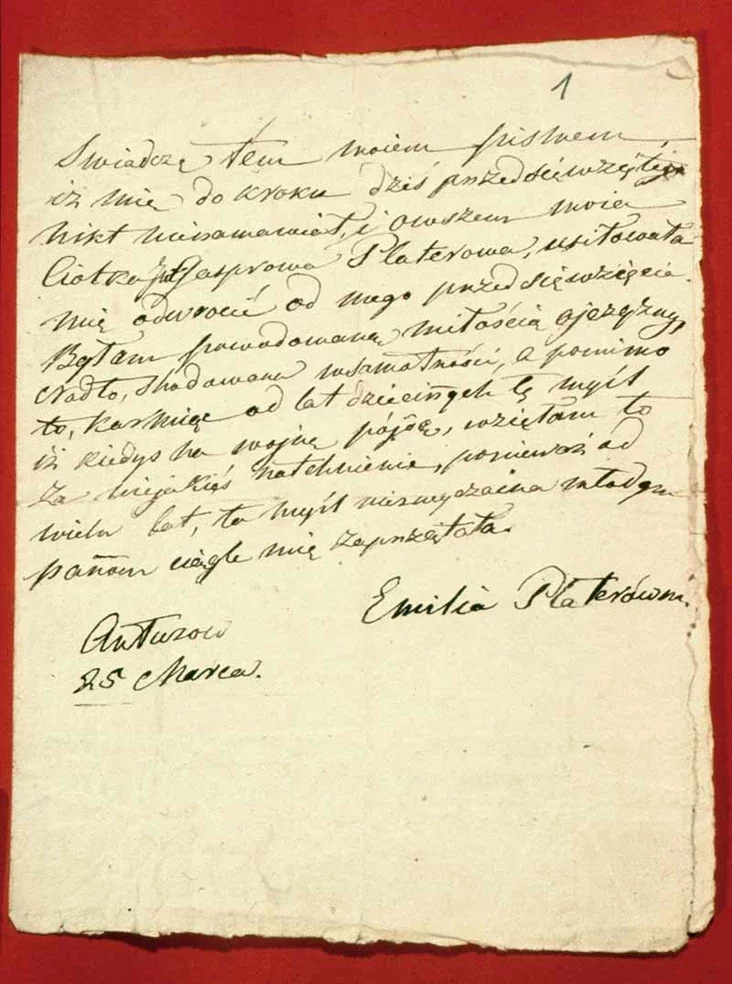 1
Swiadczę tem moiem pismem,
iż mię do kroku dziś przedsięwziętego
nikt nienamawiał, i owszem moia
Ciotka Gasprowa Platerowa, usiłowała
mię odwrocić od mego przedsięwzięcia.
Byłam powodowana miłością ojczyzny,
Nadto, shodowana wsamotności, a pomimo
to, karmiąc od lat dziecinnych tę myśl
iż kiedys na wojnę pójdę, wzięłam to
za niejakieś natchnienie, ponieważ od
wielu lat, ta myśl niezwyczaina młodym
pannom ciągle mię zaprzątała.
Emilia Platerówna.
Antuzow
25 Marca.